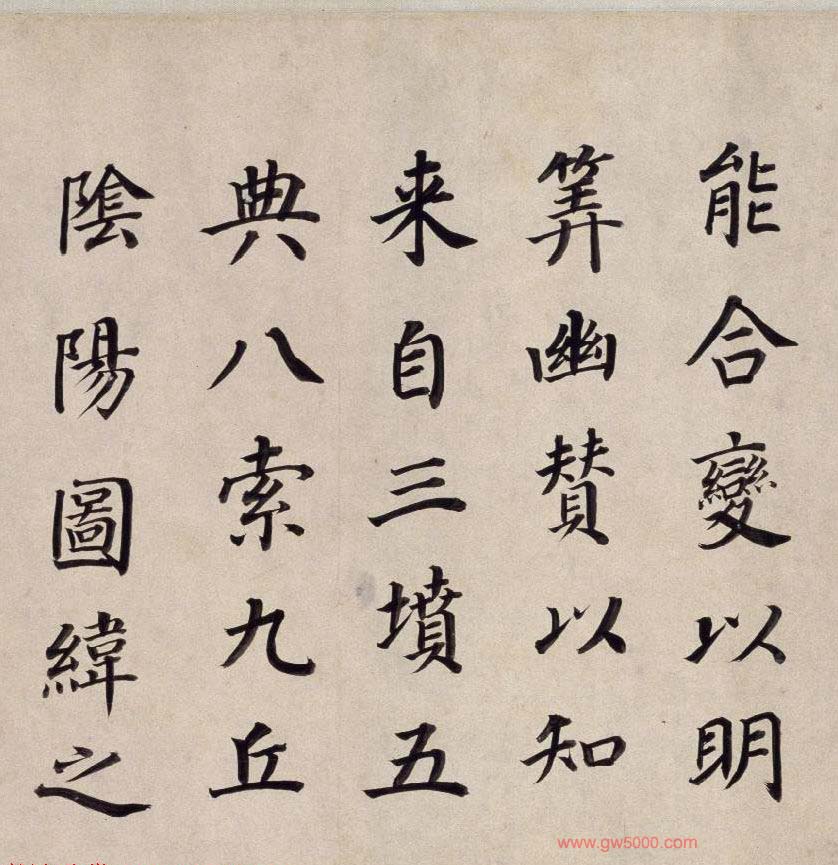 能合變以明
筭幽賛以知
来自三墳五
典八索九丘
陰陽圖緯之
www.gw5000.com